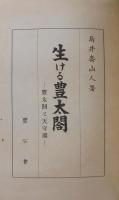 島井壽山人著
生ける豊太閤
―豊太閤と天守閣―
豊公會